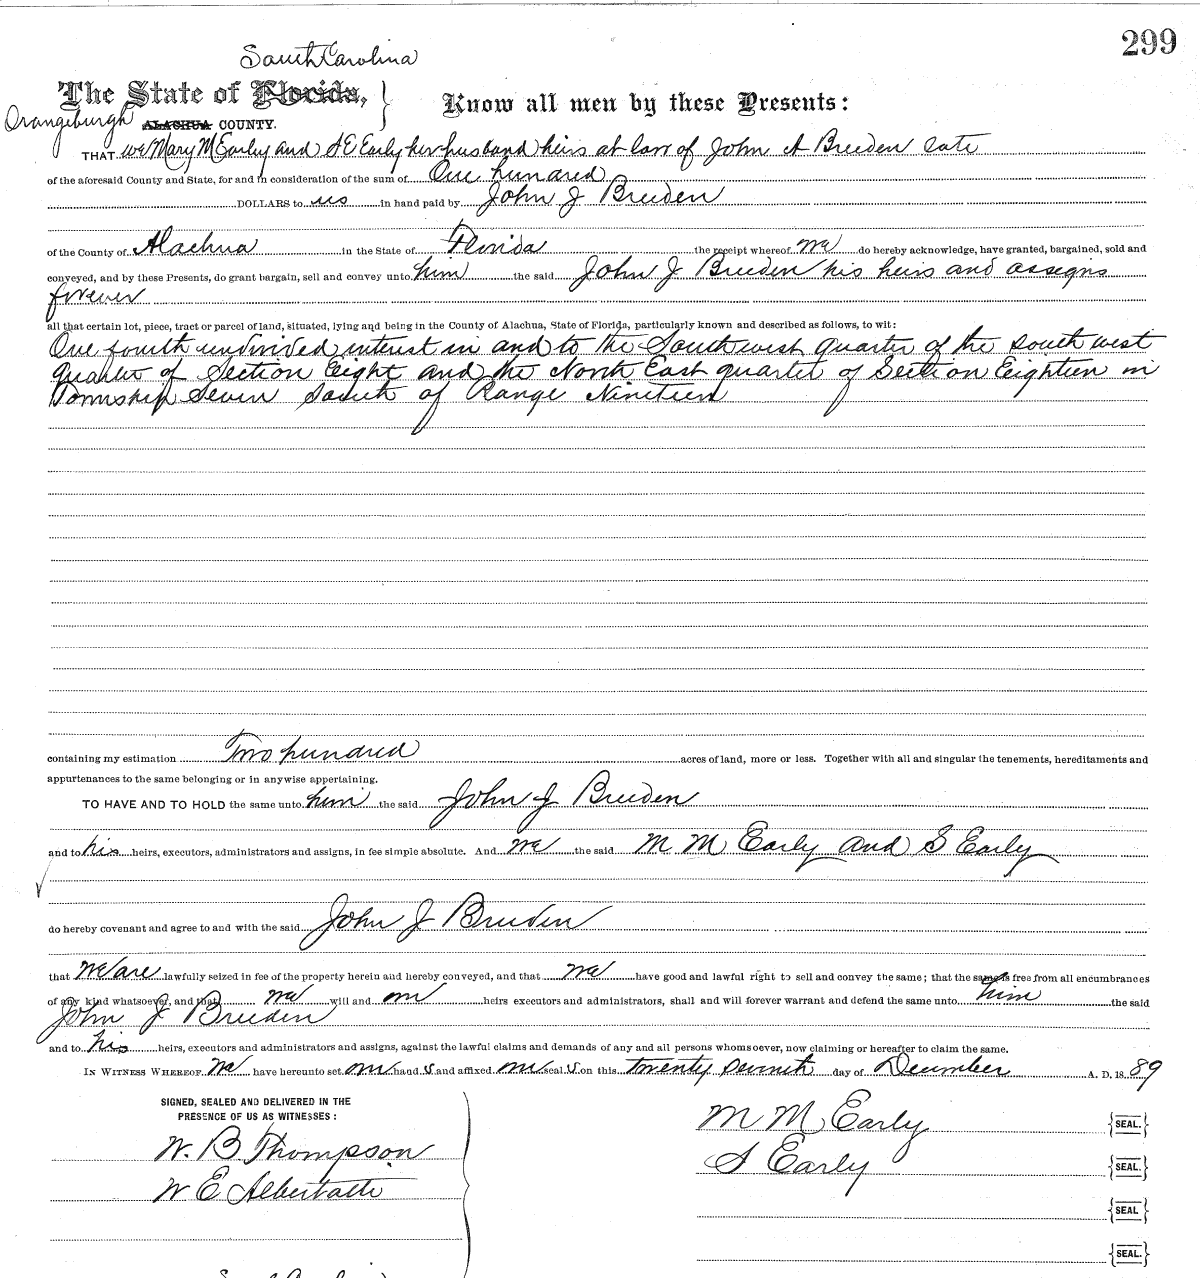 299
South Carolina
The State of Florida,
Orangeburgh ALACHUA COUNTY.
Know all men by these Presents:
THAT we Mary M Early and S E Early her husband heirs at law of John A Breeden late
of the aforesaid County and State, for and in consideration of the sum of One hundred
DOLLARS to us in hand paid by John J Breeden
of the County of Alachua in the State of Florida the receipt whereof we do hereby acknowledge, have granted, bargained, sold and
conveyed, and by these Presents, do grant bargain, sell and convey unto him the said John J Breeden his heirs and assigns
forever
all that certain lot, piece, tract or parcel of land, situated, lying and being in the County of Alachua, State of Florida, particularly known and described as follows, to wit:
One fourth undivided interest in and to the South west quarter of the south west
quarter of Section Eight and the North East quarter of Section Eighteen in
Township Seven South of Range Nineteen
containing my estimation Two hundred acres of land, more or less. Together with all and singular the tenements, hereditaments and
appurtenances to the same belonging or in anywise appertaining.
TO HAVE AND TO HOLD the same unto him the said John J Breeden
and to his heirs, executors, administrators and assigns, in fee simple absolute. And we the said M M Early and S Early
do hereby covenant and agree to and with the said John J Breeden
that we are lawfully seized in fee of the property herein and hereby conveyed, and that we have good and lawful right to sell and convey the same; that the same is free from all encumbrances
of any kind whatsoever, and that we will and our heirs executors and administrators, shall and will forever warrant and defend the same unto him the said
John J Breeden
and to his heirs, executors and administrators and assigns, against the lawful claims and demands of any and all persons whomsoever, now claiming or hereafter to claim the same.
IN WITNESS WHEREOF we have hereunto set our hand s and affixed our seal s on this twenty seventh day of December A. D. 18 89
SIGNED, SEALED AND DELIVERED IN THE
PRESENCE OF US AS WITNESSES:
M M Early {SEAL.}
W. B Thompson
S Early {SEAL.}
W E Albertatti
{SEAL}
{SEAL.}
South Carolina